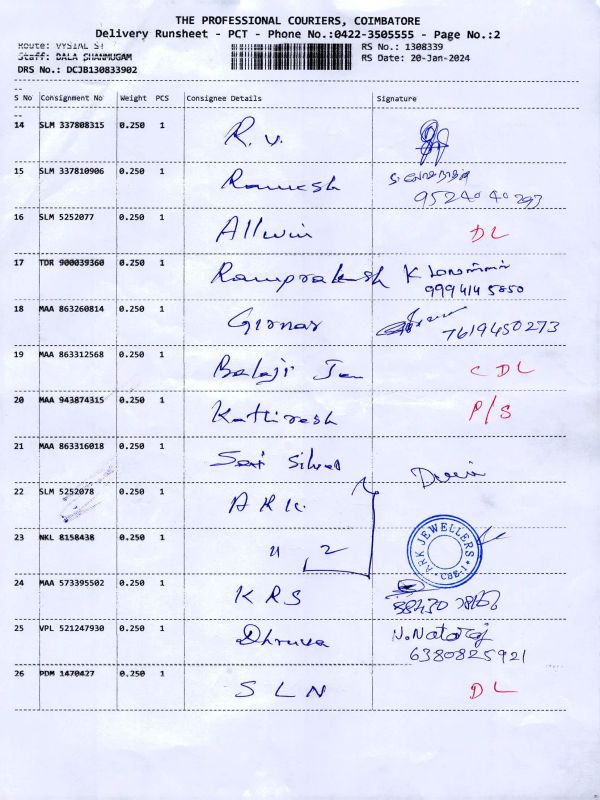 THE PROFESSIONAL COURIERS, COIMBATORE
Delivery Runsheet - PCT - Phone No.:0422-3505555 - Page No.:2
Route: VYSIAL ST RS No.: 1308339
Staff: BALA SHANMUGAM RS Date: 20-Jan-2024
DRS No.: DCJB130833902
S No Consignment No Weight PCS Consignee Details Signature
14 SLM 337808315 0.250 1 R. V.
15 SLM 337810906 0.250 1 Ramesh
9524040293
16 SLM 5252077 0.250 1 Allwin DL
17 TDR 900039360 0.250 1 Ramprakash K
9994145850
18 MAA 863260814 0.250 1 Girnar 7619450273
19 MAA 863312568 0.250 1 Balaji CDL
20 MAA 943874315 0.250 1 Kathiresh P/S
21 MAA 863316018 0.250 1 Sai Silver
22 SLM 5252078 0.250 1 A R K
23 NKL 8158438 0.250 1 " 2 ARK JEWELLERS CBE-1
24 MAA 573395502 0.250 1 K R S
25 VPL 521247930 0.250 1 Dhruva N. Nataraj
6380825921
26 PDM 1470427 0.250 1 S L N DL